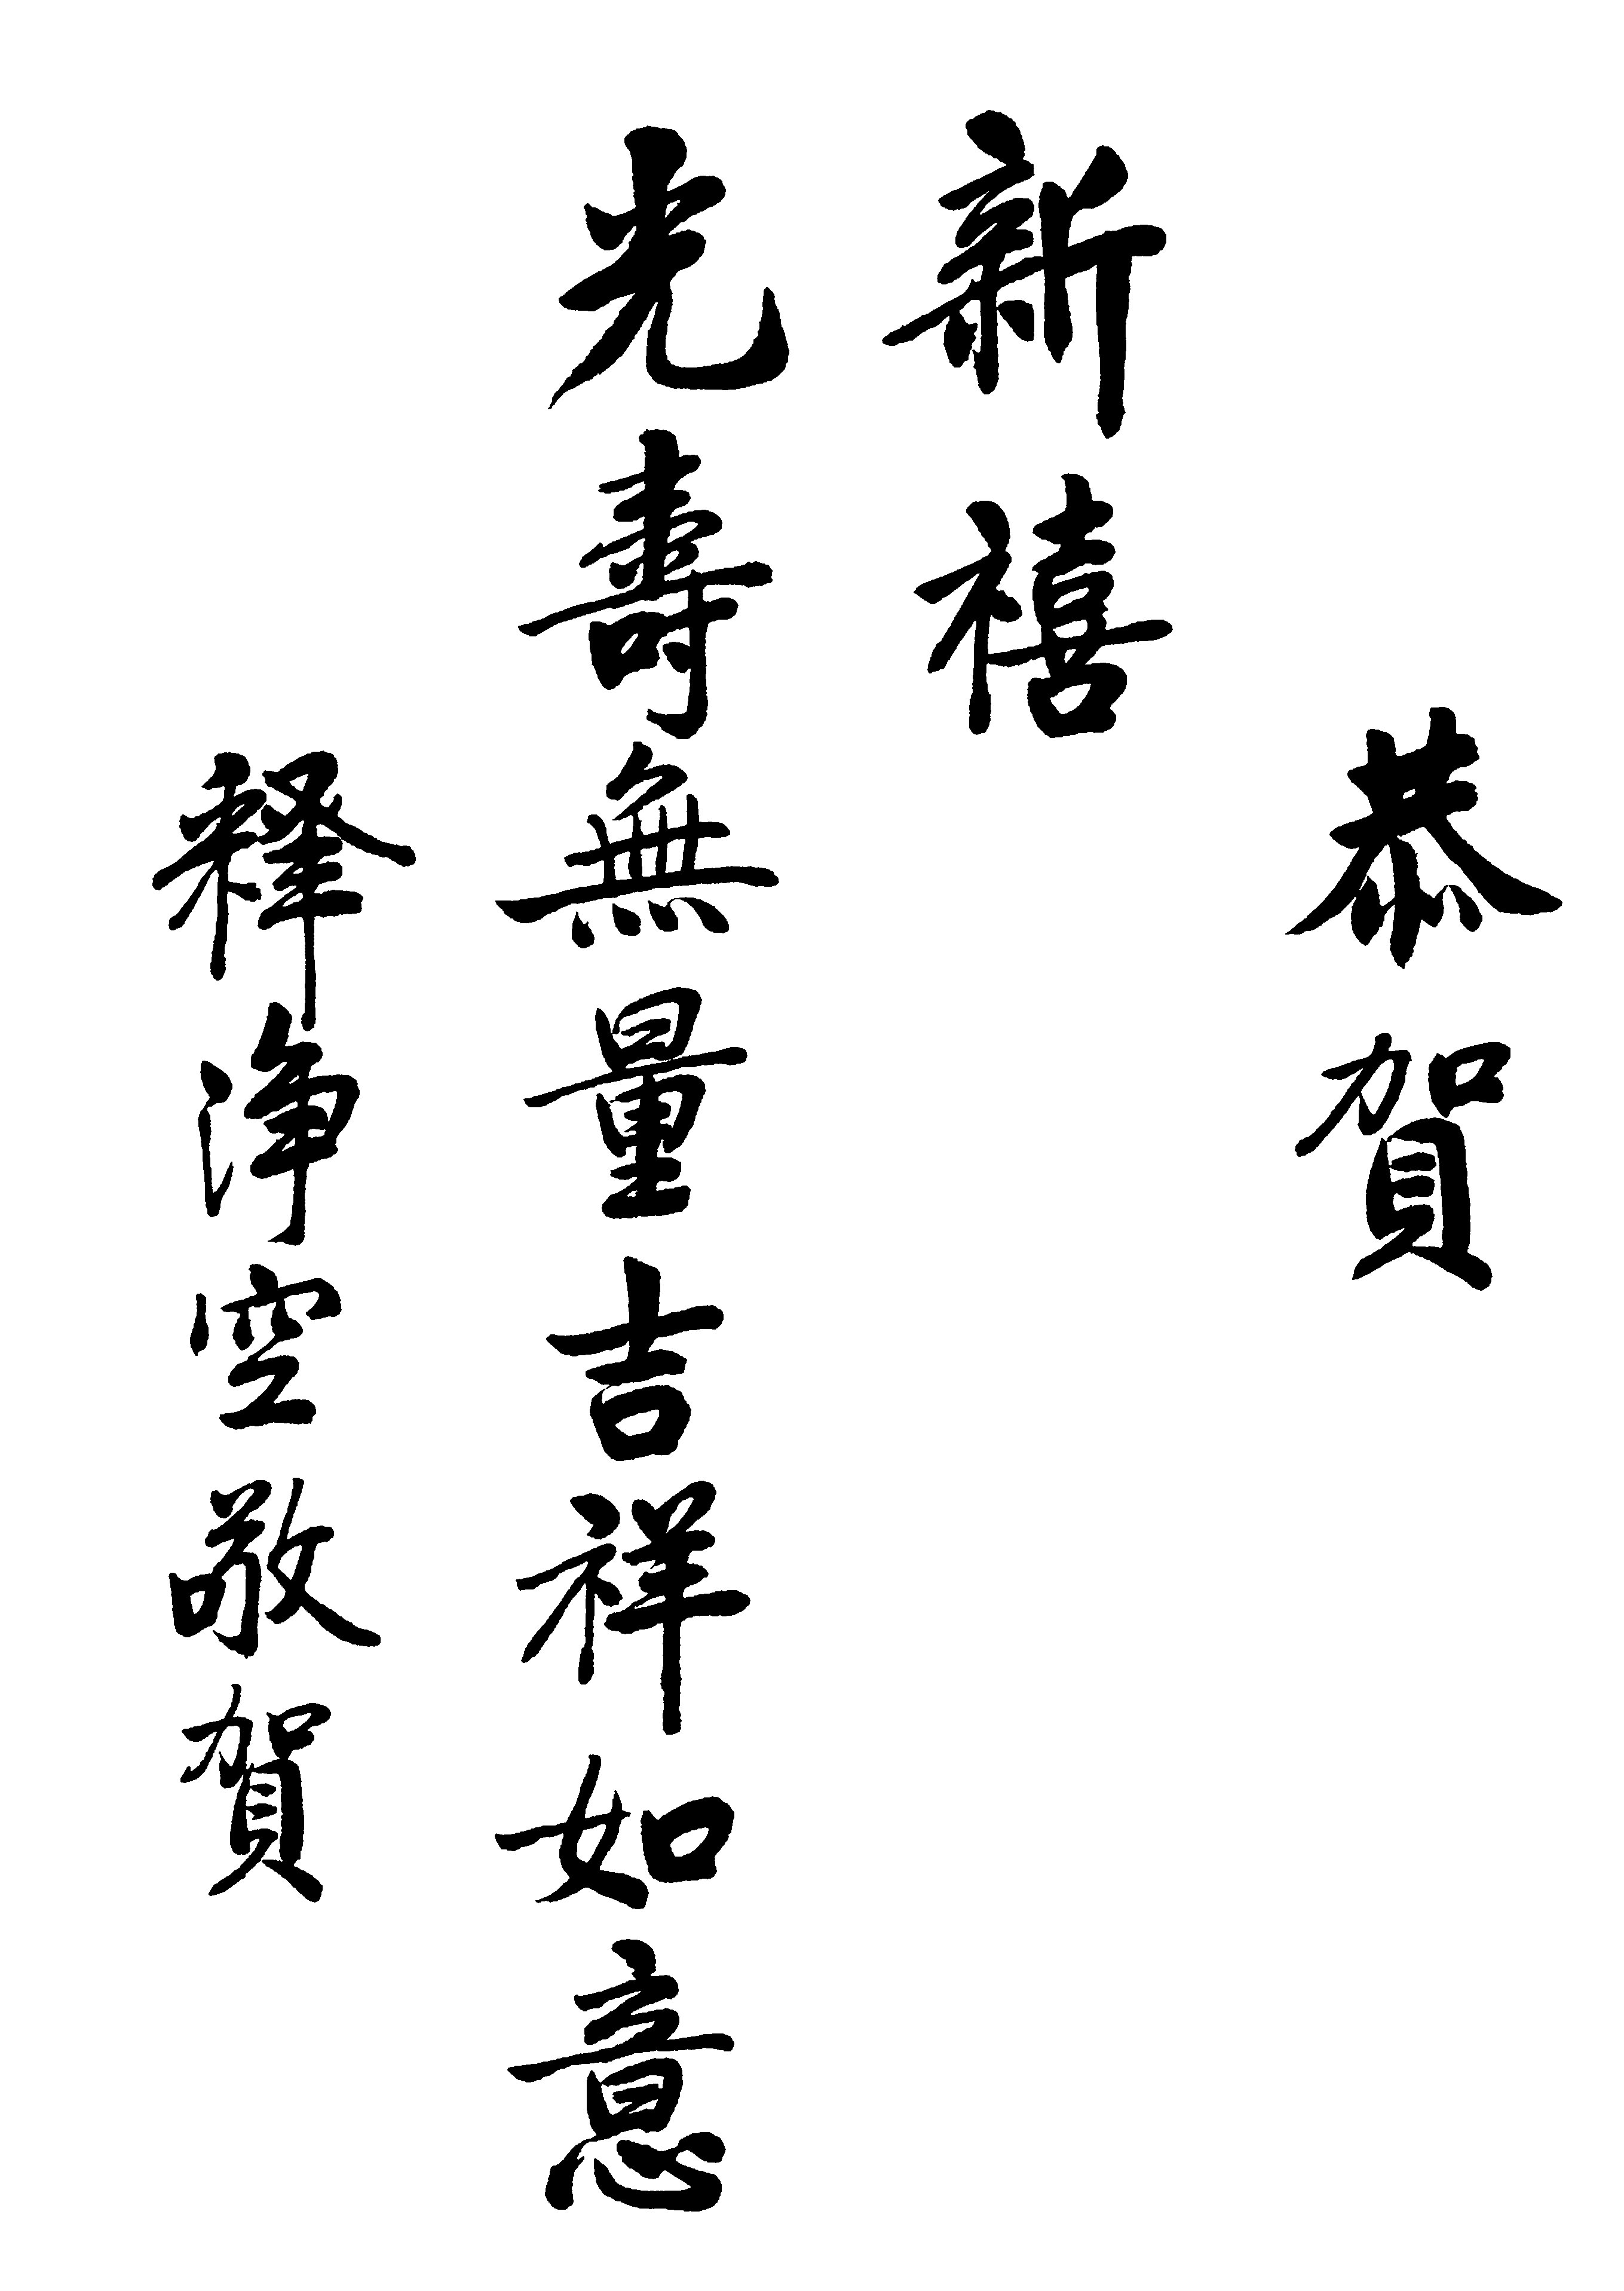 恭賀
新禧
光壽無量吉祥如意
釋淨空敬賀